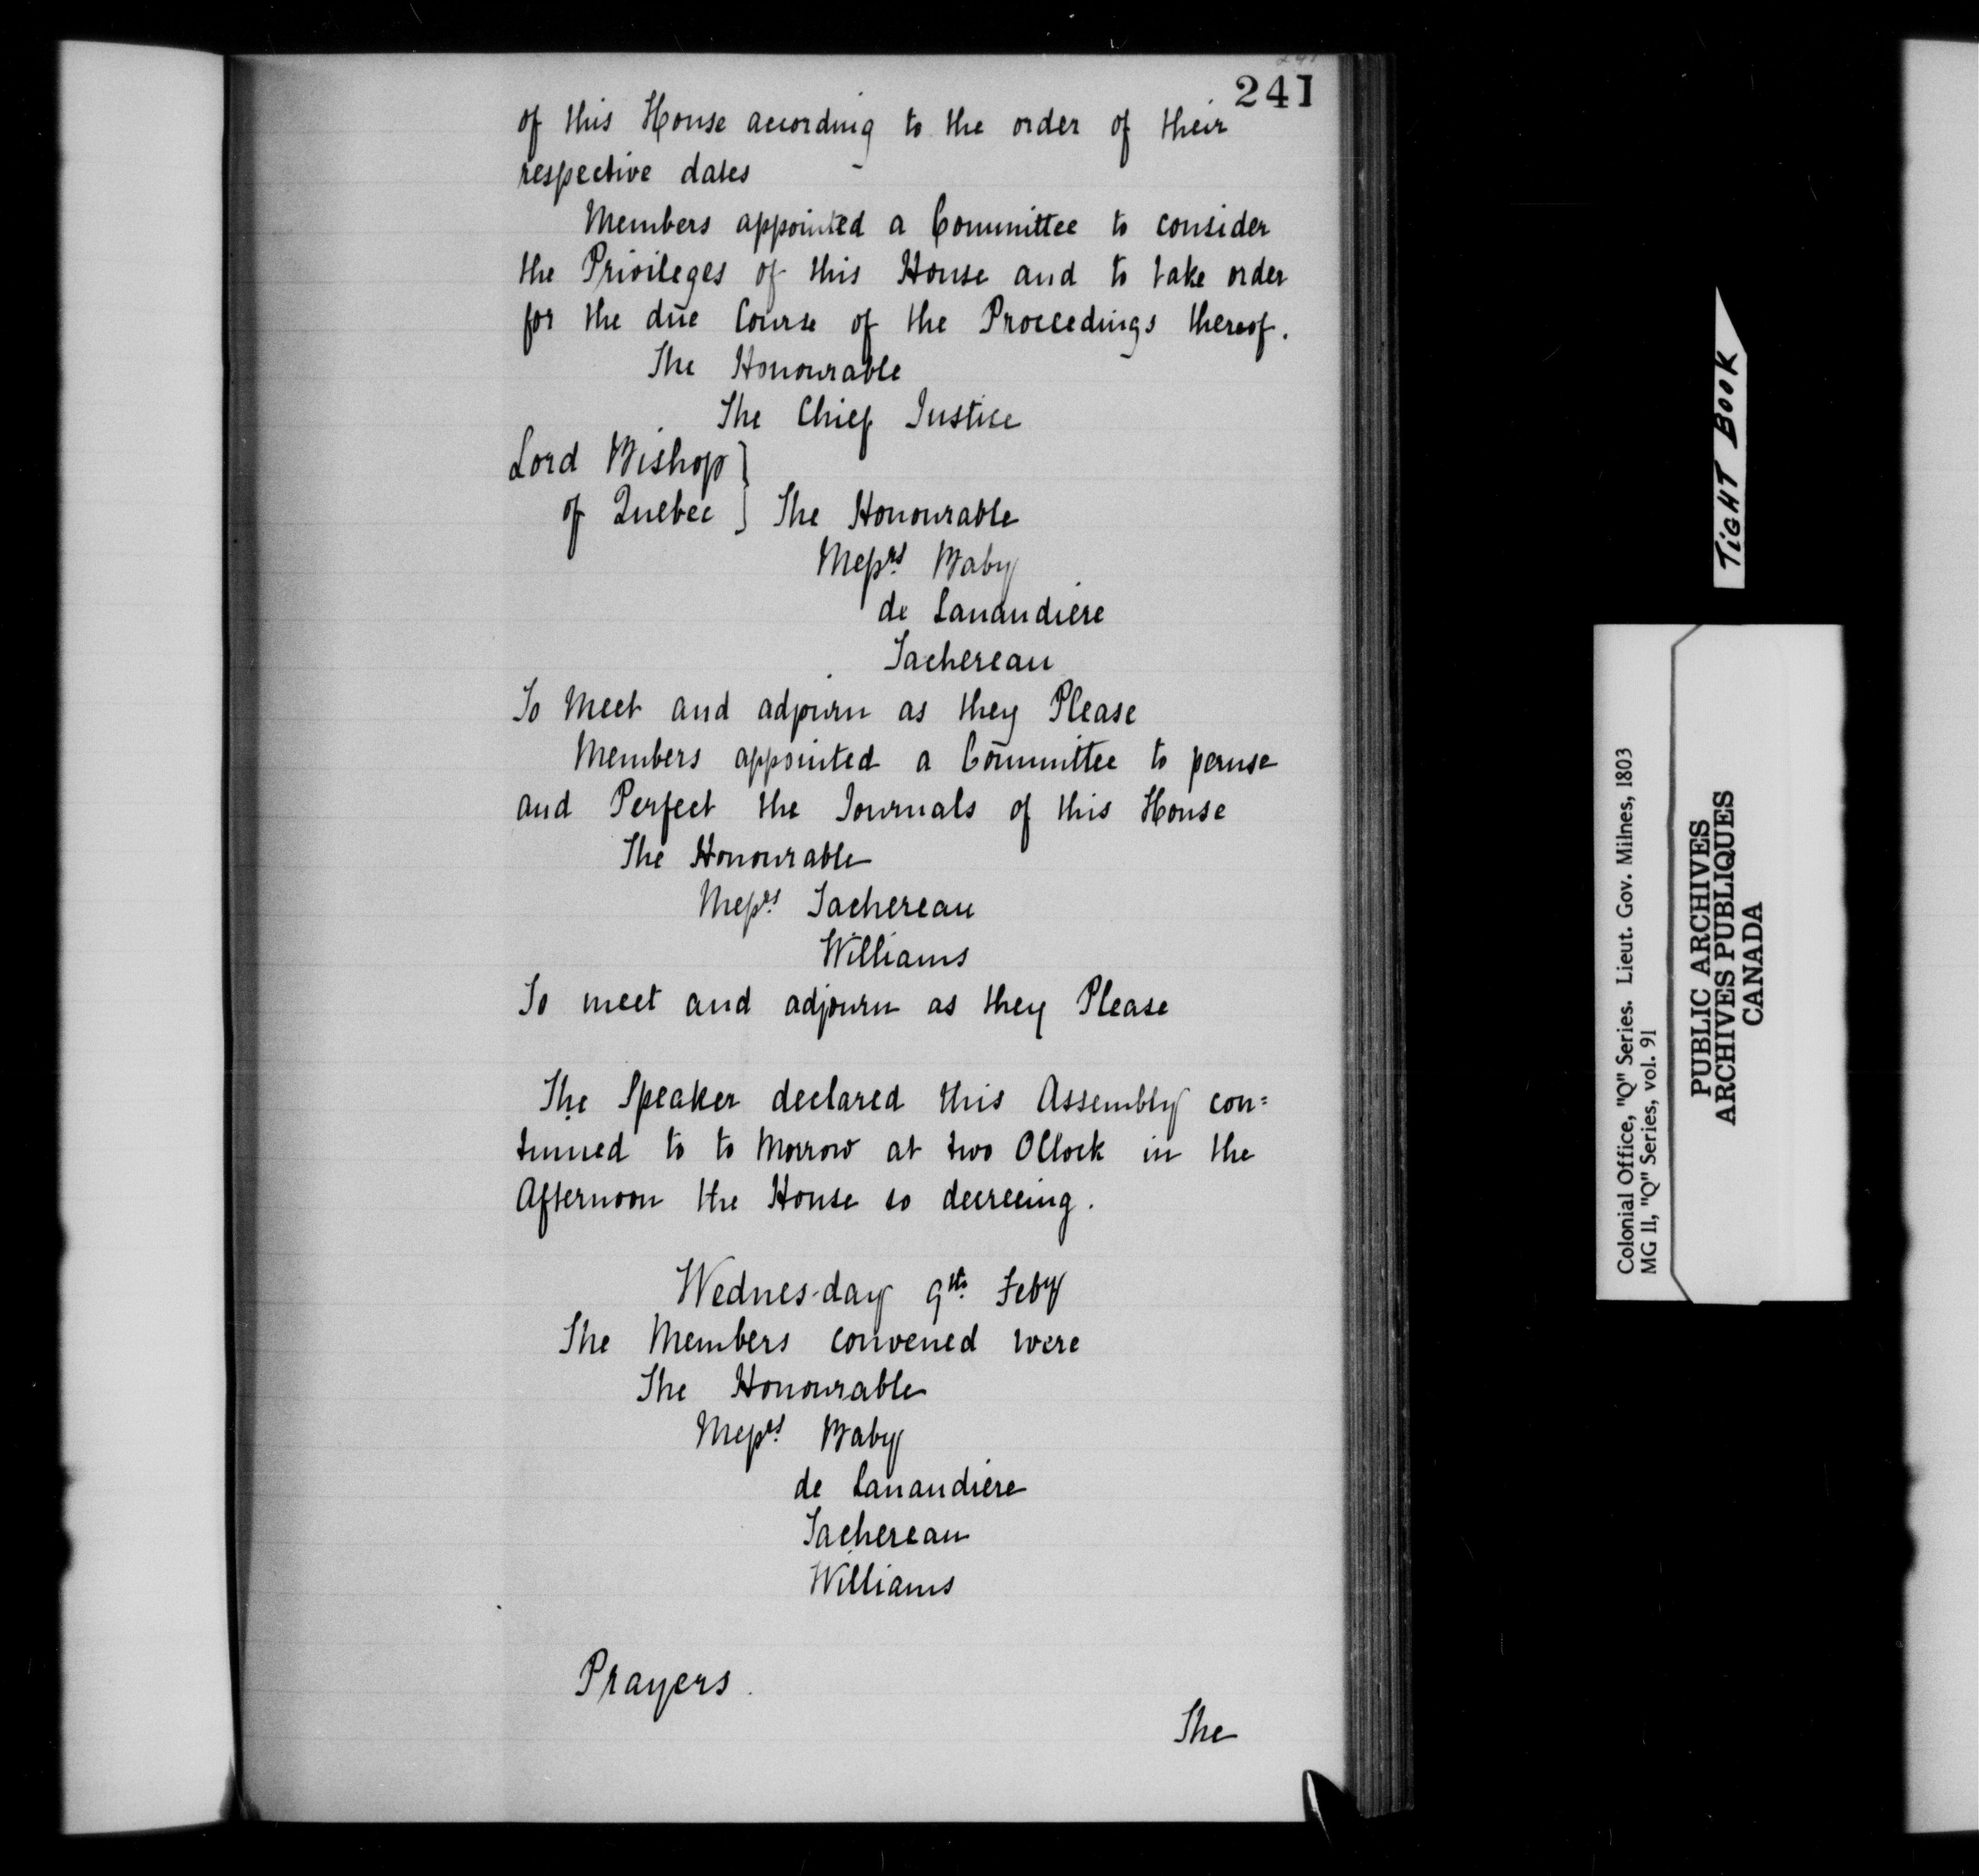 241
of this House according to the order of their
respective dates
Members appointed a Committee to consider
the Privileges of this House and to take order
for the due Course of the Proceedings thereof.
The Honourable
The Chief Justice
Lord Bishop }
of Quebec } The Honourable
Messrs. Baby
de Lanaudiere
Tachereau
To Meet and adjourn as they Please
Members appointed a Committee to peruse
and Perfect the Journals of this House
The Honourable
Messrs. Tachereau
Williams
To meet and adjourn as they Please
The Speaker declared this Assembly con=
tinued to to Morrow at two OClock in the
Afternoon the House so decreeing.
Wednes-day 9th. Feby
The Members convened were
The Honourable
Messrs. Baby
de Lanaudiere
Tachereau
Williams
Prayers.
The
TIGHT BOOK
Colonial Office, "Q" Series. Lieut. Gov. Milnes, 1803
MG 11, "Q" Series, vol. 91
PUBLIC ARCHIVES
ARCHIVES PUBLIQUES
CANADA